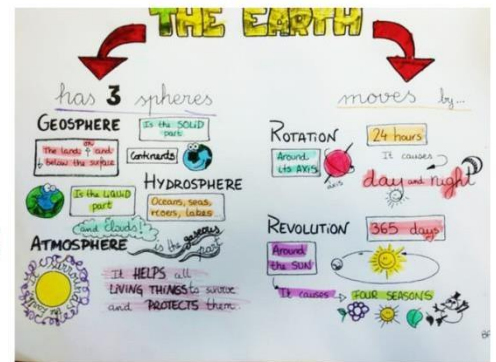 THE EARTH
has 3 spheres
GEOSPHERE
Is the SOLID
part
The land on and
below the surface
Continents
HYDROSPHERE
Is the LIQUID
part
Oceans, seas,
rivers, lakes
and clouds!
ATMOSPHERE
is the gaseous
part
It surrounds
the Earth
It HELPS all
LIVING THINGS to survive
and PROTECTS them
moves by...
ROTATION
24 hours
Around
its AXIS
axis
It causes
day and night
REVOLUTION
365 days
Around
the SUN
It causes
FOUR SEASONS